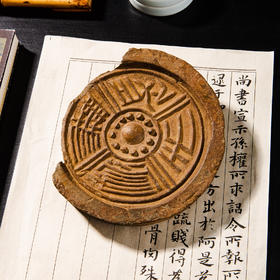 尚書宣示孫權所求詔令所報所
逮于 方出於阿是
疏賤得為
骨肉殊